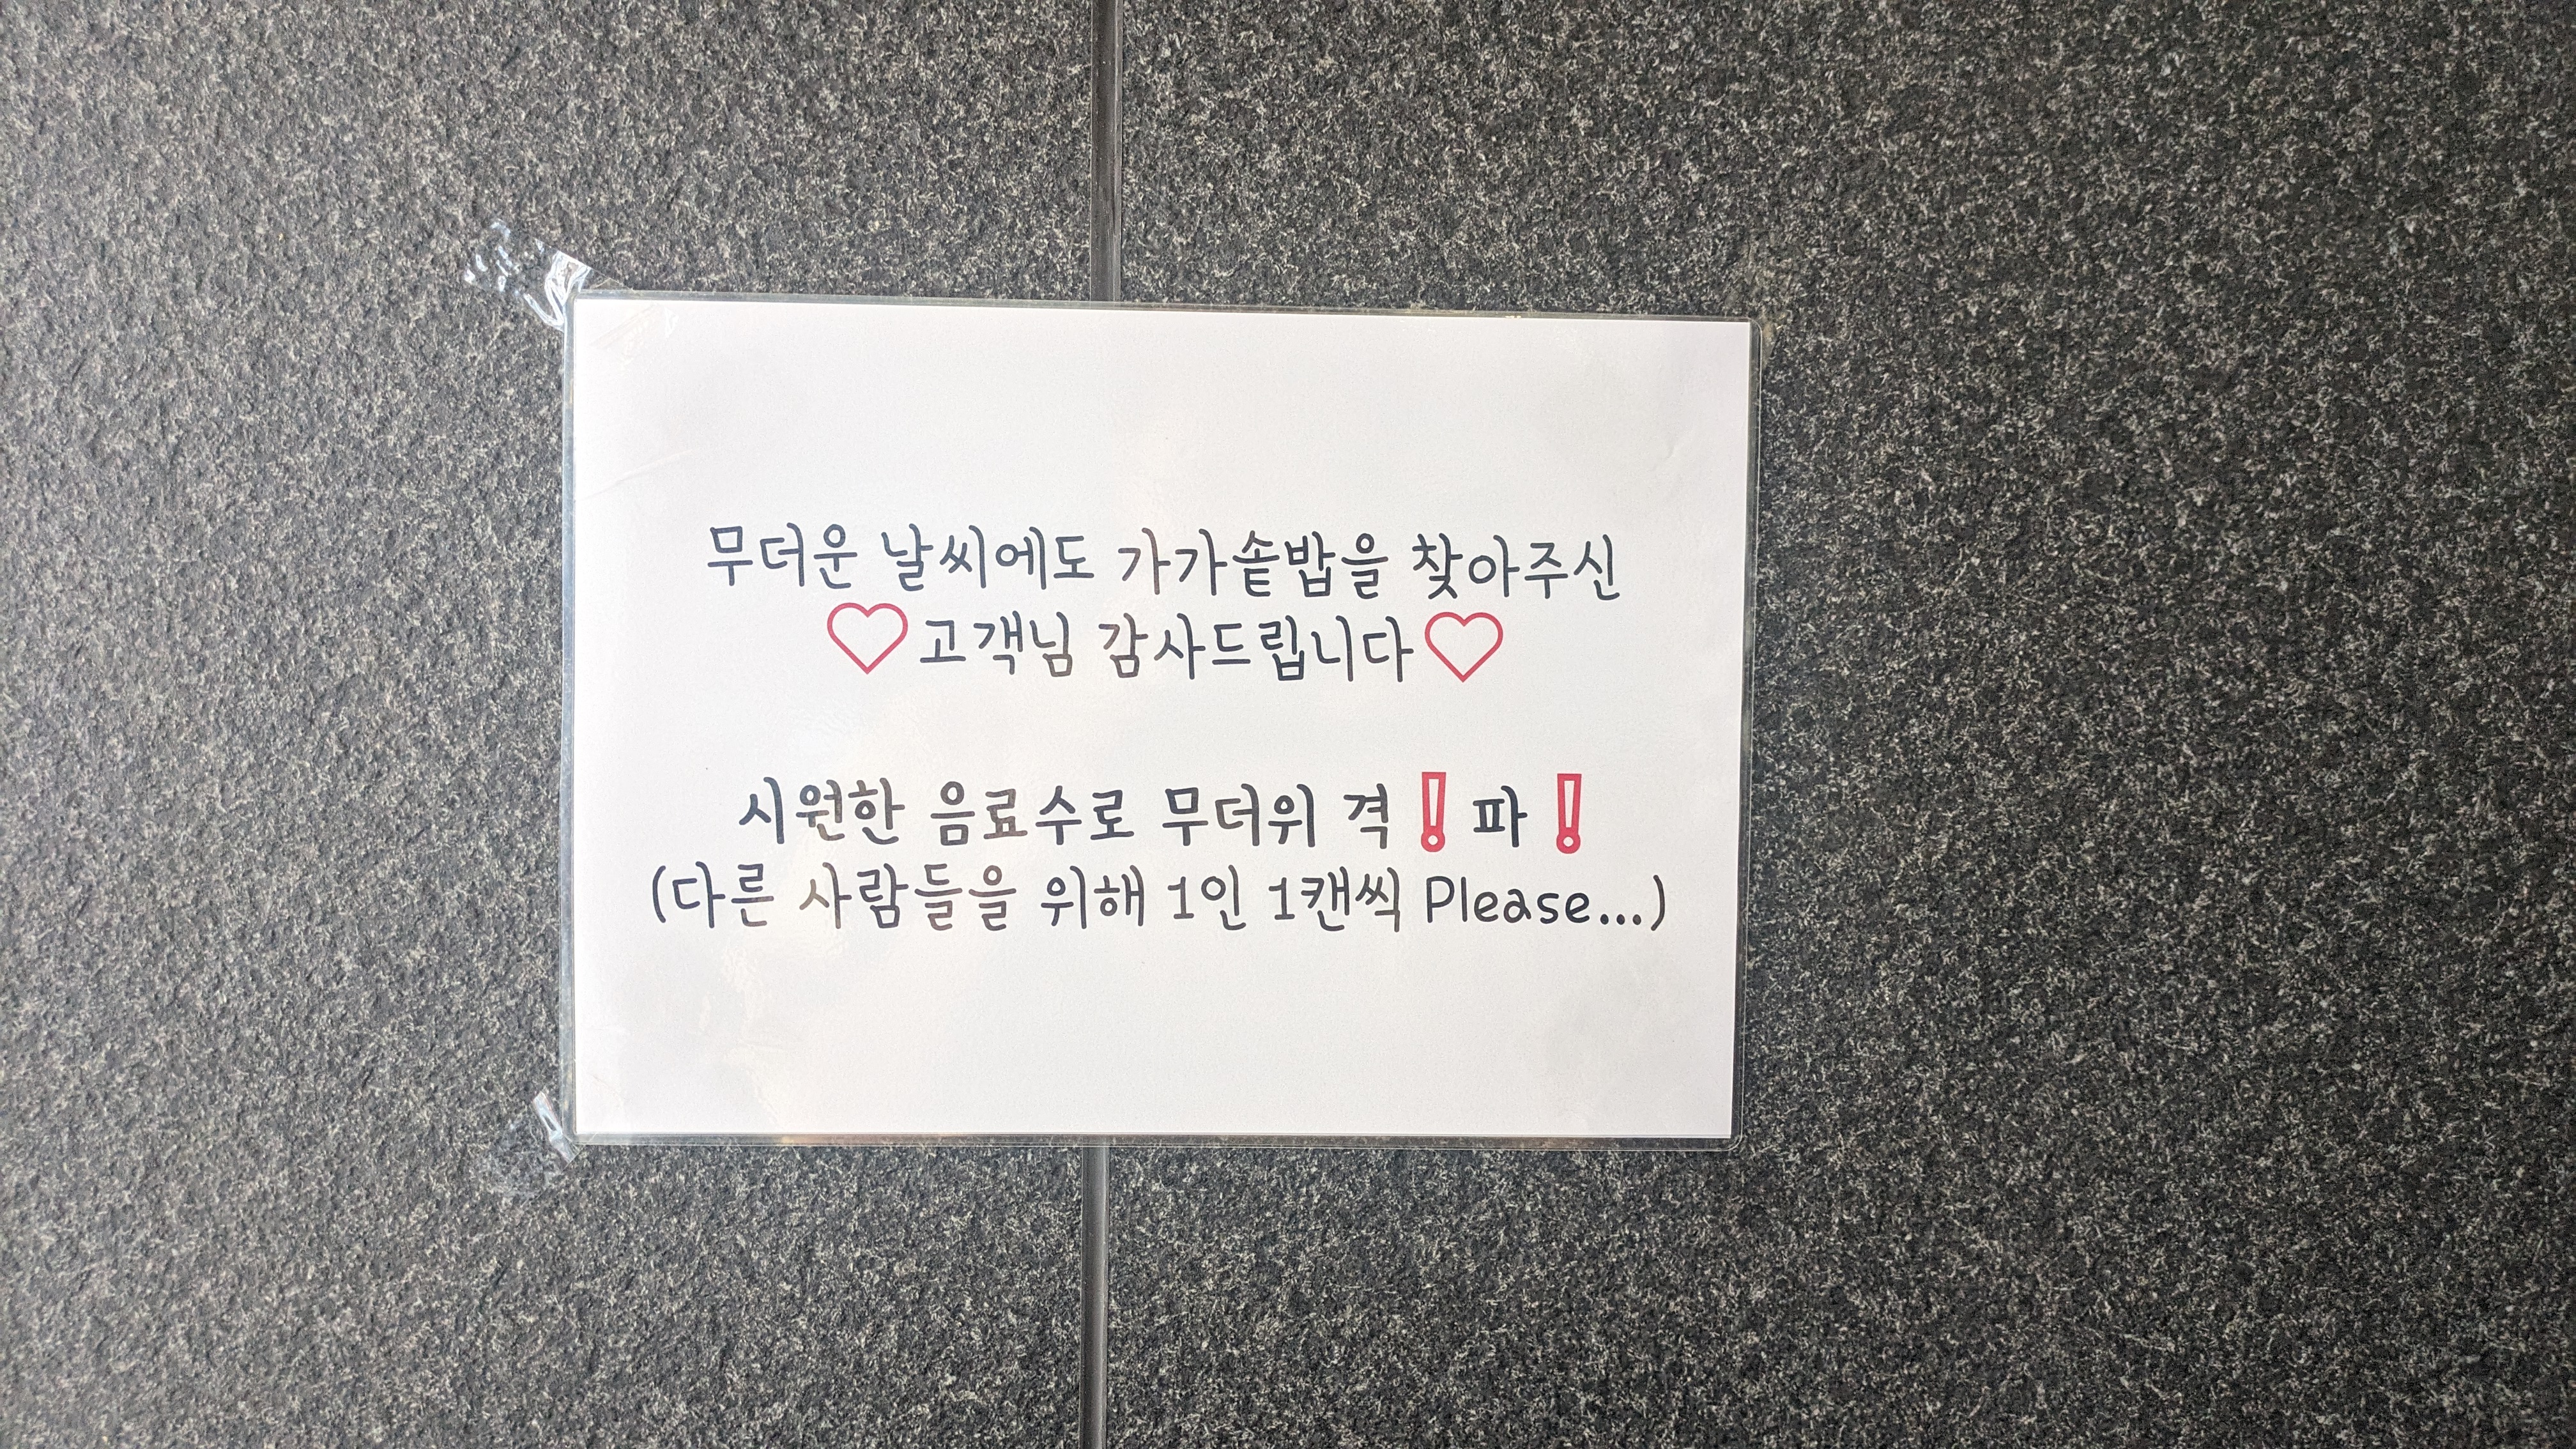 무더운 날씨에도 가가솥밥을 찾아주신
♡고객님 감사드립니다♡
시원한 음료수로 무더위 격❗파❗
(다른 사람들을 위해 1인 1캔씩 Please...)